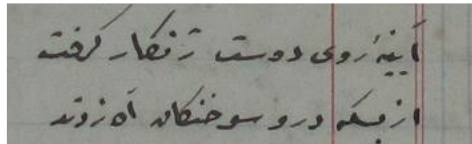 آیینهٔ روی دوست زنگار گرفت
از بسکه درو سوختگان آه زدند